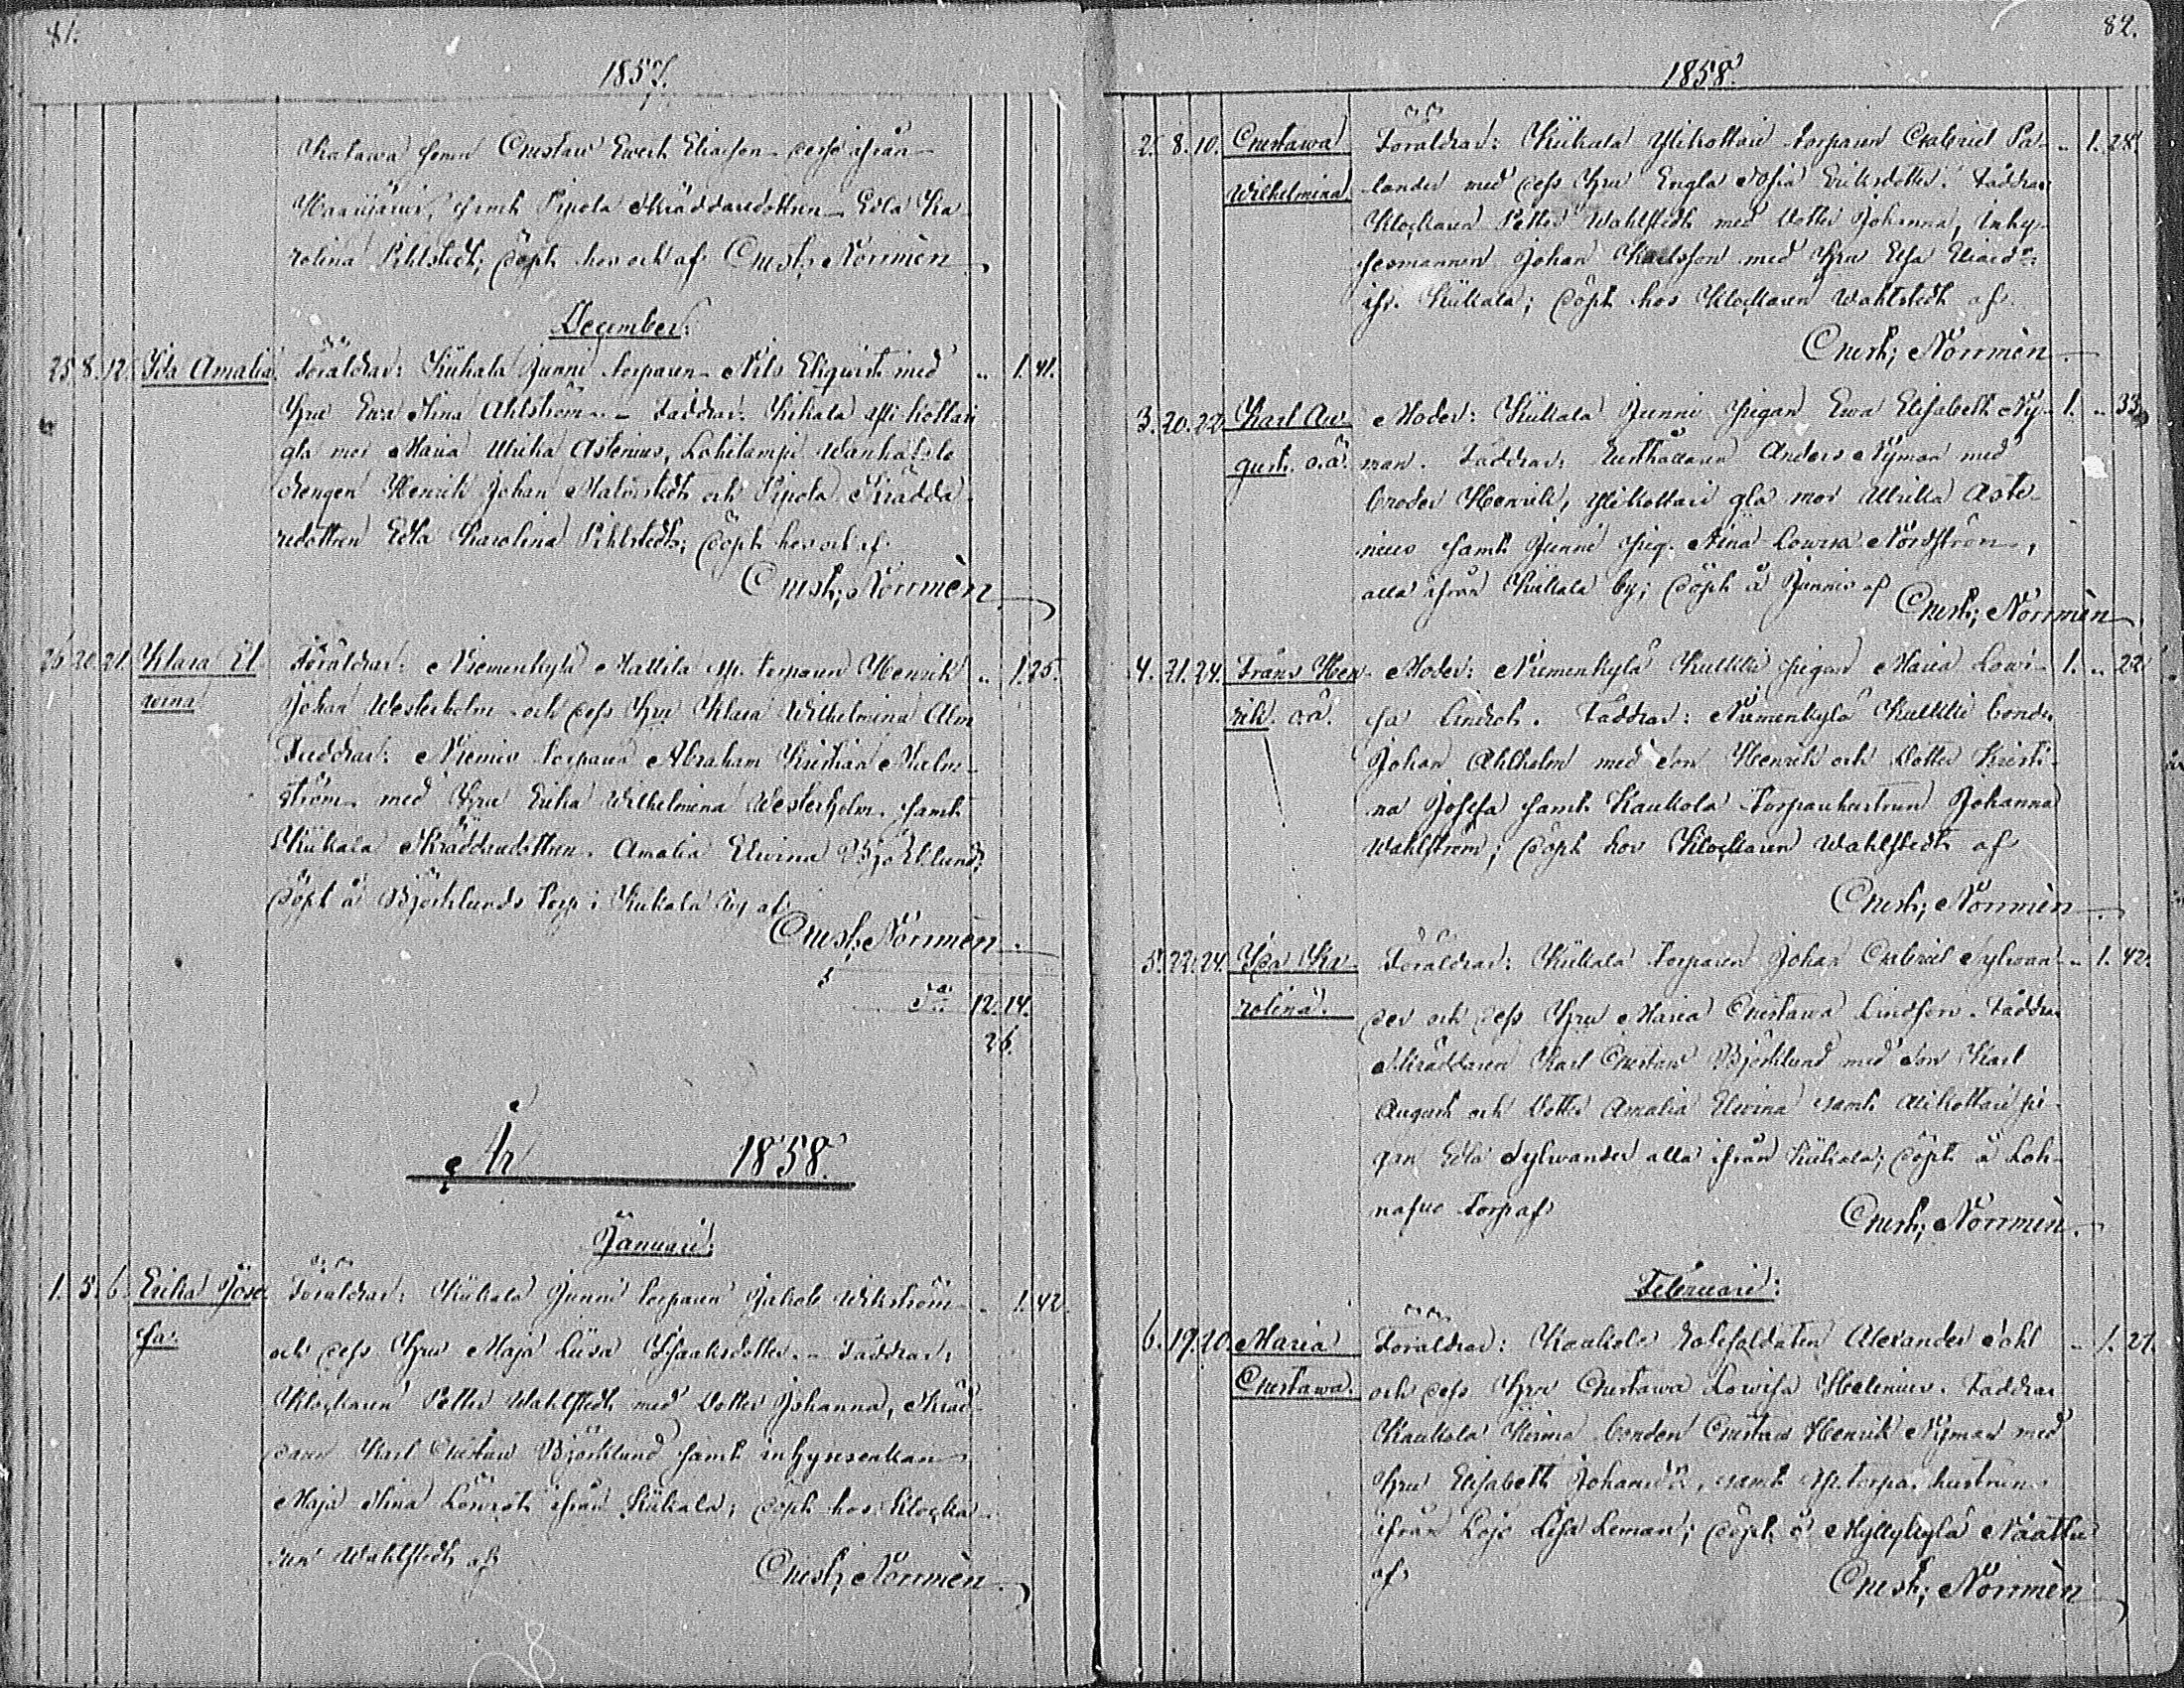 81.
1857.
Gustaw Ewert Eliasson ifrån
samt Pipola Skräddaredottren Edla Ka-
rolina Pihlstedt; döpt hos och af Gust; Norrmén
December:
25. 8. 12. Ida Amalia. Föräldrar: Kiikala Junni torparen Nils Eliqwist med „ 1. 41.
Hru Ewa Stina Ahlström. - Faddrar: Kiikala Yli kottari
gla mor Maria Ulrika Astenius, Lohilampi Wanhatalo
drengen Henrik Johan Malmstedt och Pipola Skrädda-
redottren Edla Karolina Pihlstedt; döpt hos och af
Gust; Norrmén
26. 20. 21. Klara El- Föräldrar: Niemenkylä Mattila sp. torparen Henrik „ 1. 25.
wina Johan Westerholm och dess Hru Klara Wilhelmina Alm
Faddrar: Niemis torparen Abraham Kristian Malm-
ström med Hru Erika Wilhelmina Westerholm, samt
Kiikala Skräddaredottren Amalia Elwina Björklund;
döpt å Björklunds torp i Kiikala by af
Gust; Norrmén
Sa 12. 14.
26.
År 1858.
Januari:
1. 5. 6. Erika Jose- Föräldrar: Kiikala Junni torparen Jakob Wikström „ 1. 42.
fa. och dess Hru Maja Liisa Isaaksdotter. - Faddrar:
Klockaren Petter Wahlstedt med dotter Johanna, Skräd-
daren Karl Gustaw Björklund samt inhysesenkan
Maja Stina Lönrot ifrån Kiikala; döpt hos Klocka-
ren Wahlstedt af
Gust; Norrmén
82.
1858.
2. 8. 10. Gustawa Föräldrar: Kiikala Ylikottari torparen Gabriel Pa- „ 1. 28.
Wilhelmina. lander med dess Hru Engla Sofia Eriksdotter. Faddrar
Klockaren Petter Wahlstedt med dotter Johanna, inhy-
sesmannen Johan Karlsson med Hru Elsa Eliaedr
ifr. Kiikala; döpt hos Klockaren Wahlstedt af
Gust; Norrmén
3. 20. 22. Karl Au- Moder: Kiikala Junni pigan Ewa Elisabeth Ny- 1. „ 33.
gust. o.ä. man. Faddrar: Anders Nyman med
broder Henrik, Ylikottari gla mor Ulrika Aste-
nius samt Junni pig. Stina Lowisa Nordström,
alla ifrån Kiikala by; döpt å Junnis af Gust; Norrmén
4. 21. 24. Frans Hen- Moder: Niemenkylä Kulkki pigan Maria Lowi- 1. „ 22.
rik. o.ä. sa Lindroth. Faddrar: Niemenkylä Kulkki bonden
Johan Ahlholm med son Henrik och dotter Kristi-
na Josefa samt Kaukola torparhustrun Johanna
Wahlström; döpt hos Klockaren Wahlstedt af
Gust; Norrmén
5. 22. 24. Ida Ka- Föräldrar: Kiikala torparen Johan Gabriel Sylwan- „ 1. 42.
rolina. der och dess Hru Maria Gustawa Lindfors. Faddrar
Skräddaren Karl Gustaw Björklund med son Karl
August och dotter Amalia Elwina samt Alikottari pi-
gan Edla Sylwander alla ifrån Kiikala; döpt å Loh-
nasuo torp af
Gust; Norrmén
Februari:
6. 19. 20. Maria Föräldrar: Kaukola Rotesoldaten Alexander Sohl „ 1. 27.
Gustawa. och dess Hru Gustawa Lowisa Helenius. Faddrar
Kaukola bonden Gustaw Henrik Nyman med
Hru Elisabeth Johansdr, samt sp. torpa. hustrun
ifrån Lojo Lisa Leman; döpt å Myllykylä Näättu
af
Gust; Norrmén